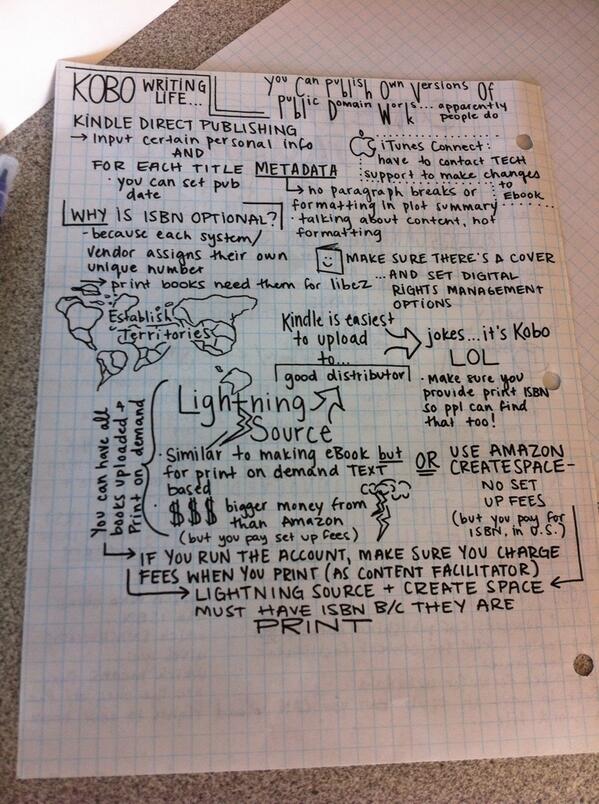 KOBO WRITING LIFE...
You Can Publish Own Versions Of
Public Domain Works... apparently people do
KINDLE DIRECT PUBLISHING
→ Input certain personal info
AND
FOR EACH TITLE METADATA
· you can set pub date
↳ no paragraph breaks or
formatting in plot summary
· talking about content, not
formatting
iTunes Connect:
have to contact TECH
support to make changes
to Ebook
WHY IS ISBN OPTIONAL?
- because each system/
Vendor assigns their own
unique number
→ print books need them for libez
MAKE SURE THERE'S A COVER
...AND SET DIGITAL
RIGHTS MANAGEMENT
OPTIONS
Establish
Territories
Kindle is easiest
to upload
to...
jokes...it's Kobo
LOL
· Make sure you
provide print ISBN
so ppl can find
that too!
good distributor
Lightning
Source
You can have all
books uploaded +
Print on demand
· Similar to making eBook but
for print on demand TEXT
based
· $$$ bigger money from
than Amazon
(but you pay set up fees)
OR USE AMAZON
CREATESPACE-
NO SET
UP FEES
(but you pay for
ISBN, in U.S.)
→ IF YOU RUN THE ACCOUNT, MAKE SURE YOU CHARGE
FEES WHEN YOU PRINT (AS CONTENT FACILITATOR)
→ LIGHTNING SOURCE + CREATE SPACE
MUST HAVE ISBN B/C THEY ARE
PRINT